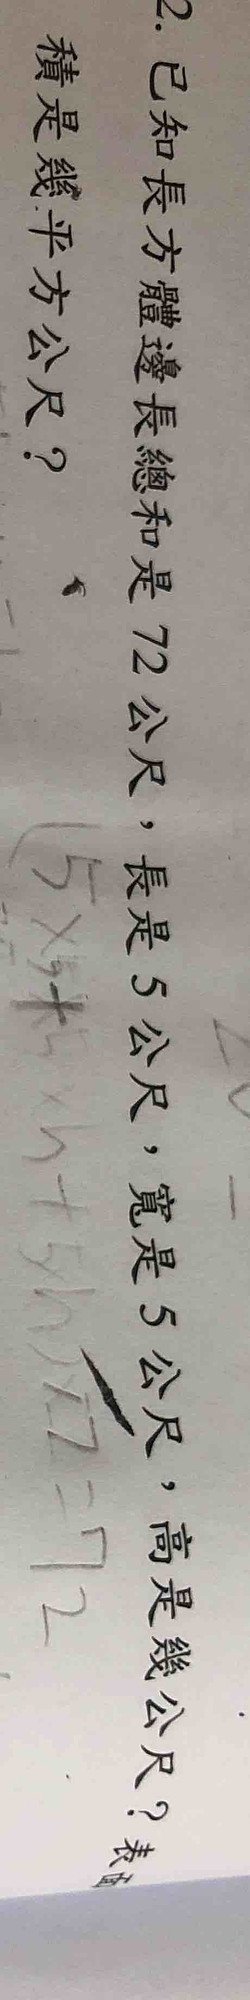 2. 已知長方體邊長總和是72公尺，長是5公尺，寬是5公尺，高是幾公尺？表面
積是幾平方公尺？
(5×5+5×h+5×h)×2=72